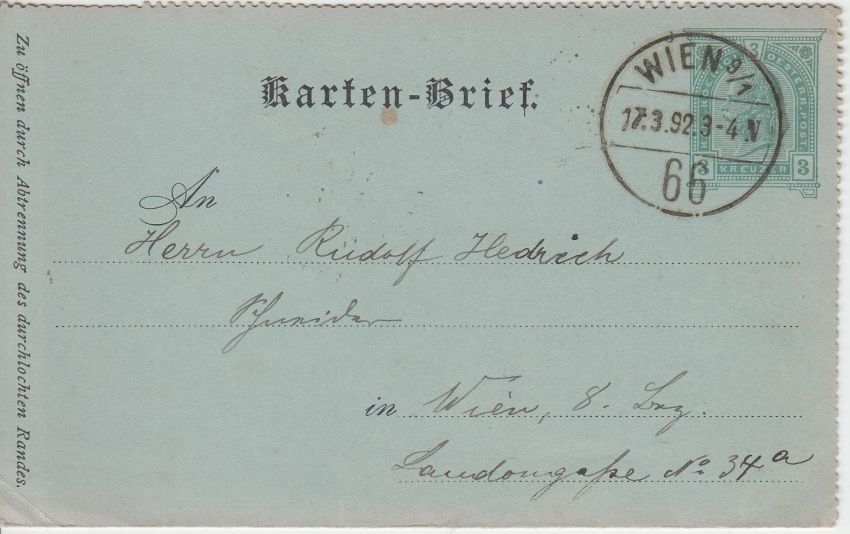 Karten-Brief.
WIEN 9/1
17.3.92.3-4 N
66
3
OESTERR. POST
3 KREUZER 3
An
Herrn Rudolf Hedrich
Schneider
in Wien, 8. Bez.
Laudongaße No 34a
Zu öffnen durch Abtrennung des durchlochten Randes.